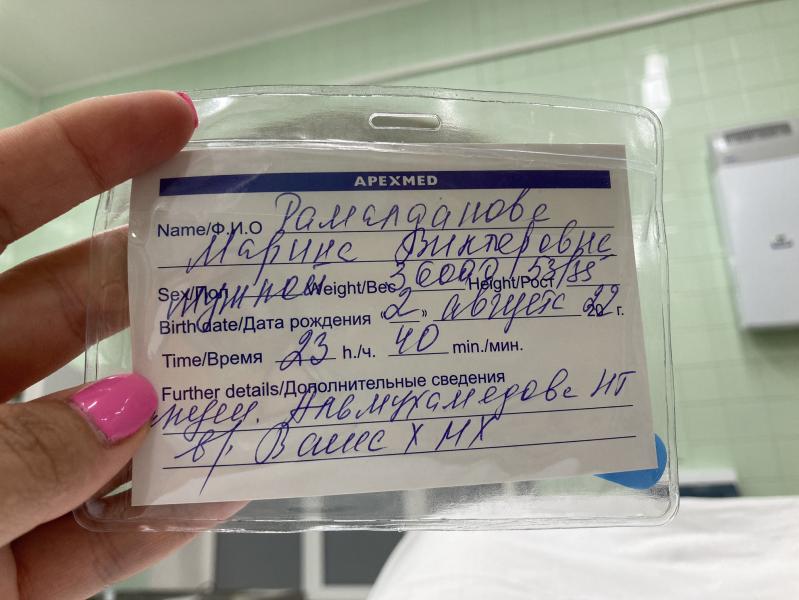 APEXMED
Name/Ф.И.О Рамалданова
Марина Викторовна
Sex/Пол мужской Weight/Вес 3600,0 Height/Рост 53/35
Birth date/Дата рождения 2 » августа 2022 г.
Time/Время 23 h./ч. 40 min./мин.
Further details/Дополнительные сведения
Альмухамедова НТ
вр.